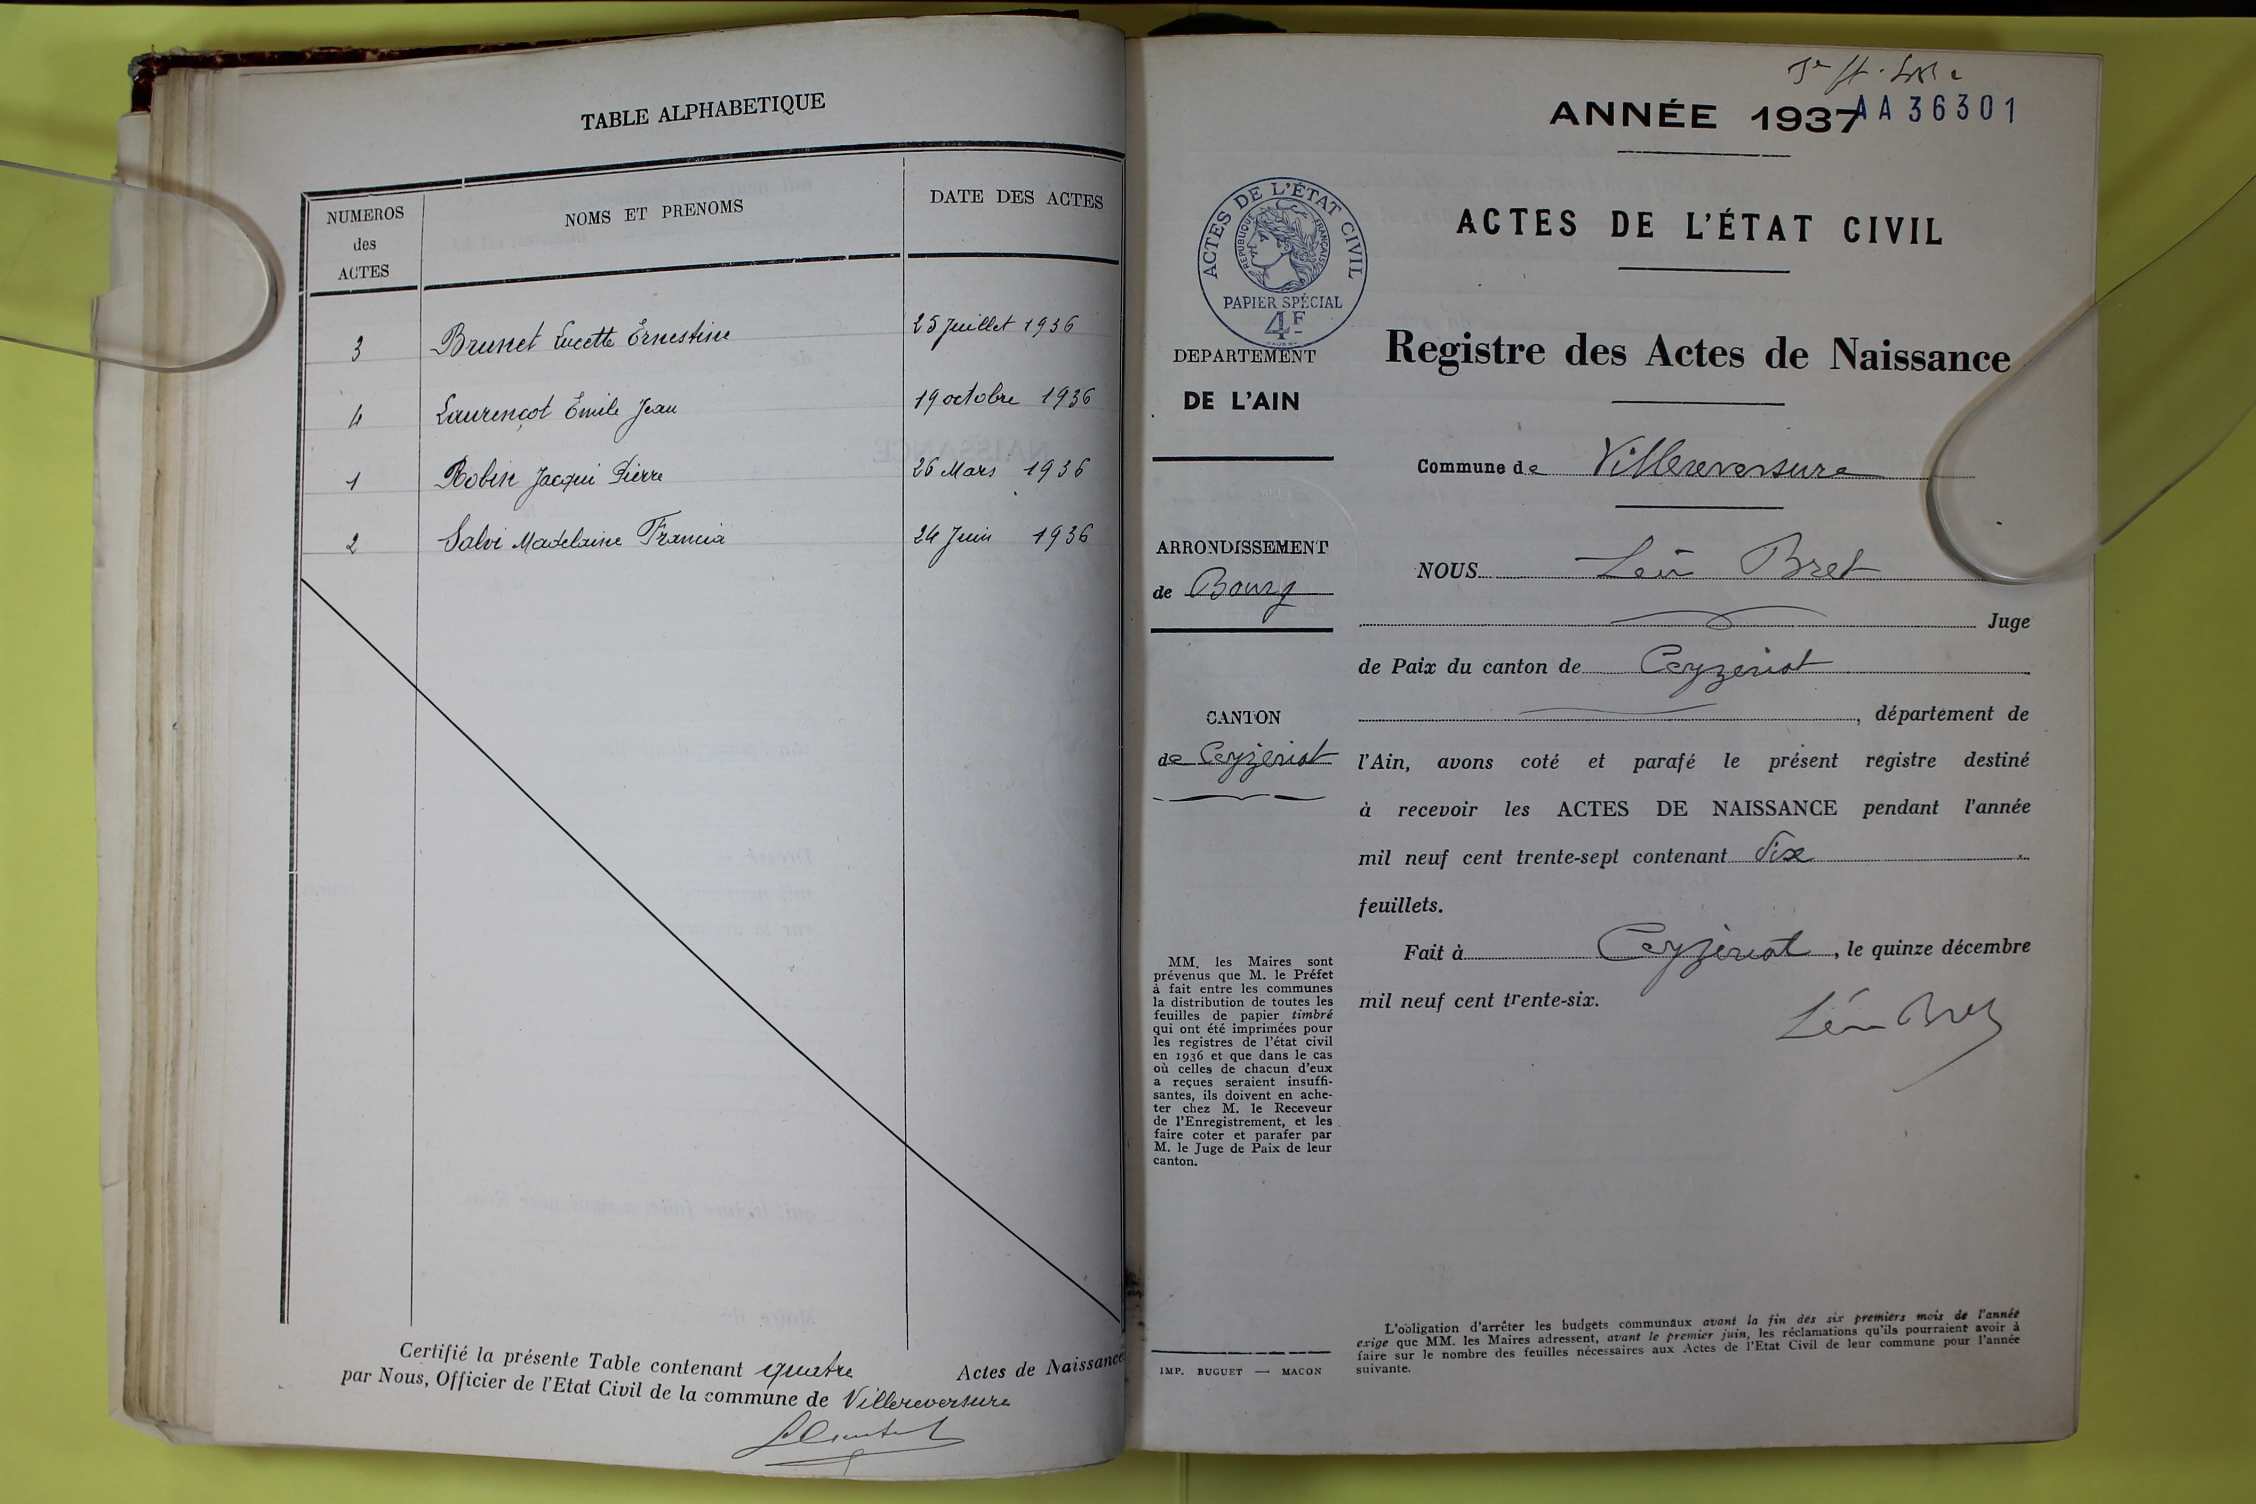 TABLE ALPHABETIQUE
NUMEROS
des
ACTES
NOMS ET PRENOMS
DATE DES ACTES
3 Brunet Lucette Ernestine 25 Juillet 1936
4 Laurençot Emile Jean 19 octobre 1936
1 Robin Jacqui Pierre 26 Mars 1936
2 Salvi Madelaine Francia 24 Juin 1936
Certifié la présente Table contenant quatre Actes de Naissance
par Nous, Officier de l'Etat Civil de la commune de Villereversure
ANNÉE 1937
AA 36301
ACTES DE L'ÉTAT CIVIL
ACTES DE L'ÉTAT CIVIL
RÉPUBLIQUE FRANÇAISE
PAPIER SPÉCIAL
4F
DEPARTEMENT
DE L'AIN
ARRONDISSEMENT
de Bourg
CANTON
de Ceyzériat
MM. les Maires sont
prévenus que M. le Préfet
à fait entre les communes
la distribution de toutes les
feuilles de papier timbré
qui ont été imprimées pour
les registres de l'état civil
en 1936 et que dans le cas
où celles de chacun d'eux
a reçues seraient insuffi-
santes, ils doivent en ache-
ter chez M. le Receveur
de l'Enregistrement, et les
faire coter et parafer par
M. le Juge de Paix de leur
canton.
IMP. BUGUET — MACON
Registre des Actes de Naissance
Commune de Villereversure
NOUS Léon Bret
Juge
de Paix du canton de Ceyzériat
, département de
l'Ain, avons coté et parafé le présent registre destiné
à recevoir les ACTES DE NAISSANCE pendant l'année
mil neuf cent trente-sept contenant Six
feuillets.
Fait à Ceyzériat, le quinze décembre
mil neuf cent trente-six.
Léon Bret
L'obligation d'arrêter les budgets communaux avant la fin des six premiers mois de l'année
exige que MM. les Maires adressent, avant le premier juin, les réclamations qu'ils pourraient avoir à
faire sur le nombre des feuilles nécessaires aux Actes de l'Etat Civil de leur commune pour l'année
suivante.